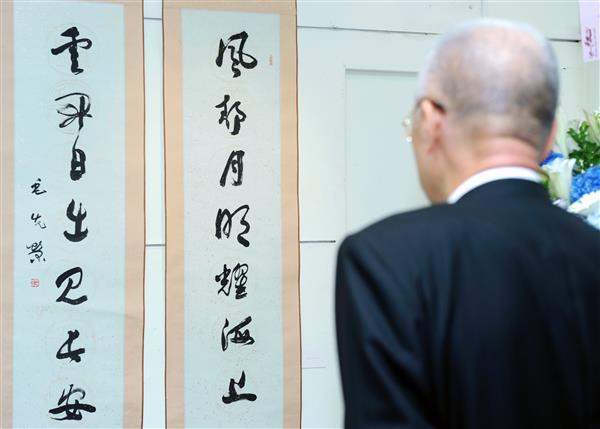 風月明耀海上
雲開日出見長安
毛先